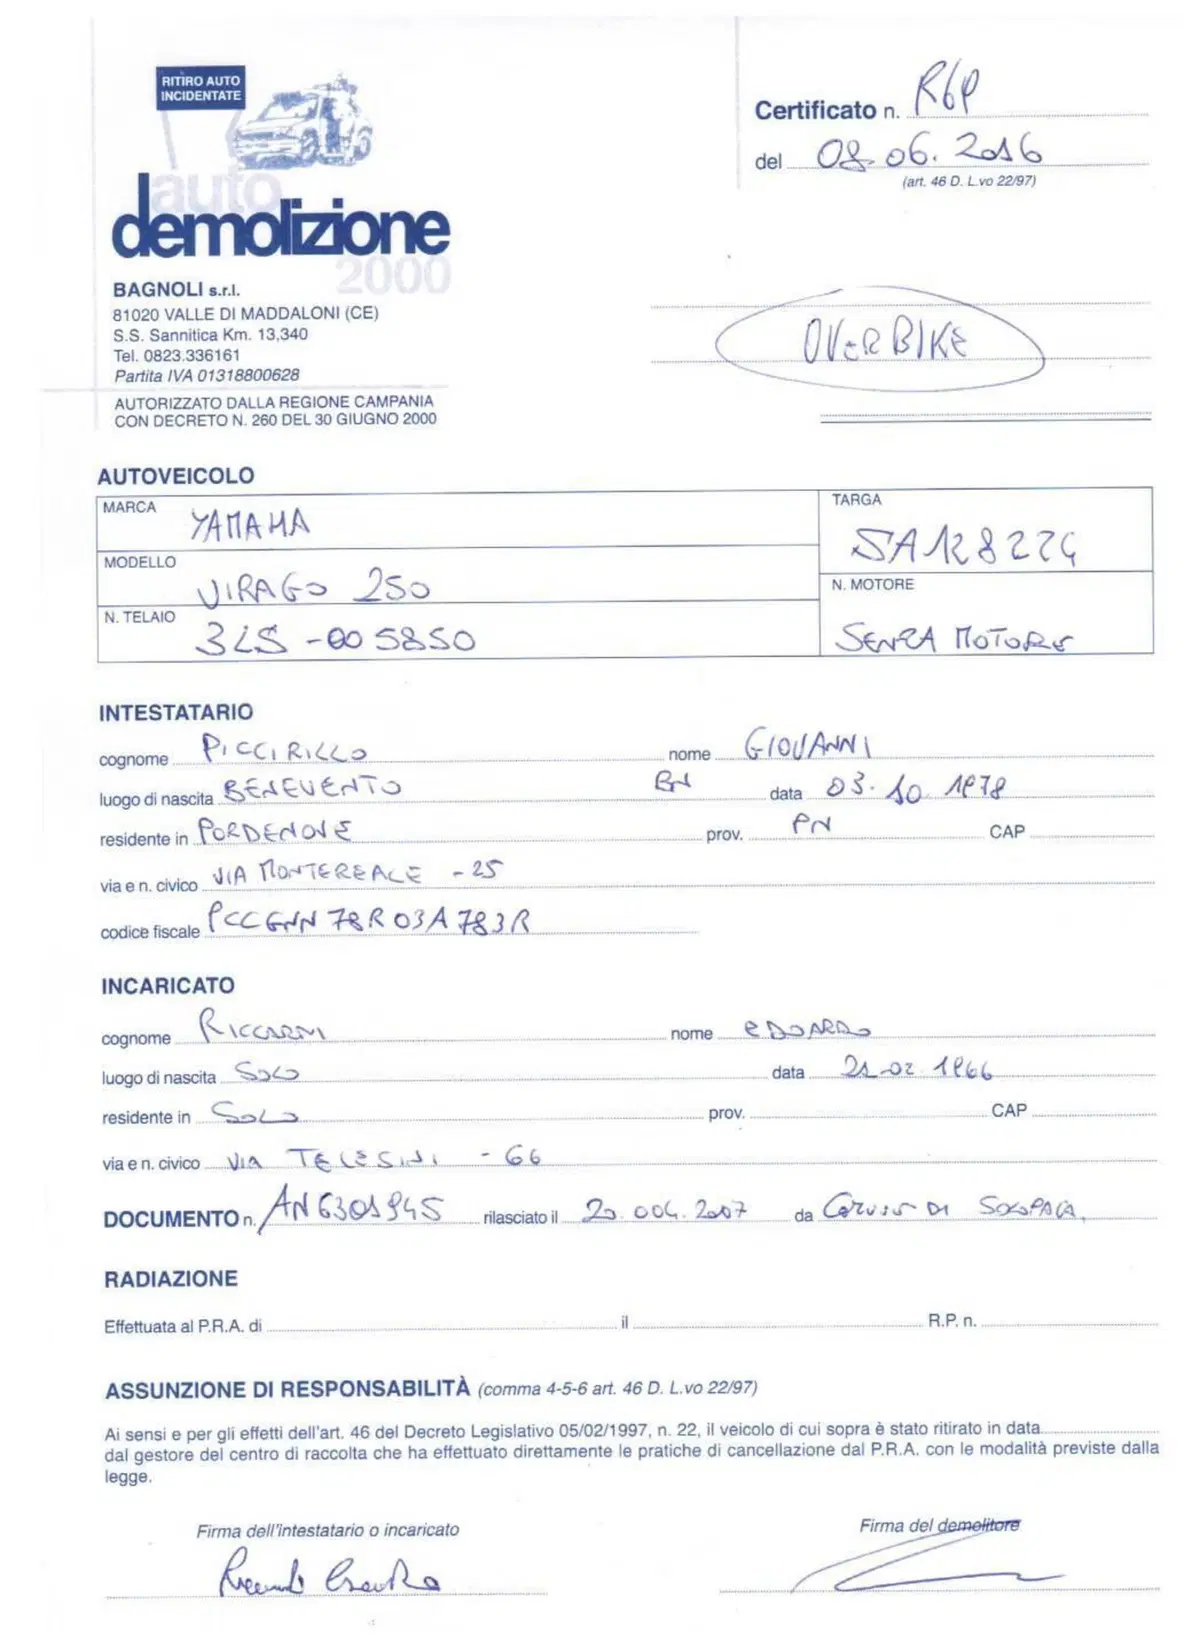 RITIRO AUTO
INCIDENTATE
auto
demolizione
2000
BAGNOLI s.r.l.
81020 VALLE DI MADDALONI (CE)
S.S. Sannitica Km. 13,340
Tel. 0823.336161
Partita IVA 01318800628
AUTORIZZATO DALLA REGIONE CAMPANIA
CON DECRETO N. 260 DEL 30 GIUGNO 2000
Certificato n.
del 08.06.2016
(art. 46 D. L.vo 22/97)
OVERBIKE
AUTOVEICOLO
MARCA YAMAHA
TARGA SA128224
MODELLO VIRAGO 250
N. MOTORE SENZA MOTORE
N. TELAIO 3LS-005850
INTESTATARIO
cognome PICCIRILLO nome GIOVANNI
luogo di nascita BENEVENTO BN data 03.10.1978
residente in PORDENONE prov. PN CAP
via e n. civico VIA MONTEREALE - 25
codice fiscale PCCGNN78R03A783R
INCARICATO
cognome nome EDOARDO
luogo di nascita SOLO data 21-02 1966
residente in SOLO prov. CAP
via e n. civico VIA TELESINI - 66
DOCUMENTO n. AN6301945 rilasciato il 20.004.2007 da DI SOLOPACA
RADIAZIONE
Effettuata al P.R.A. di il R.P. n.
ASSUNZIONE DI RESPONSABILITÀ (comma 4-5-6 art. 46 D. L.vo 22/97)
Ai sensi e per gli effetti dell'art. 46 del Decreto Legislativo 05/02/1997, n. 22, il veicolo di cui sopra è stato ritirato in data
dal gestore del centro di raccolta che ha effettuato direttamente le pratiche di cancellazione dal P.R.A. con le modalità previste dalla
legge.
Firma dell'intestatario o incaricato Firma del demolitore